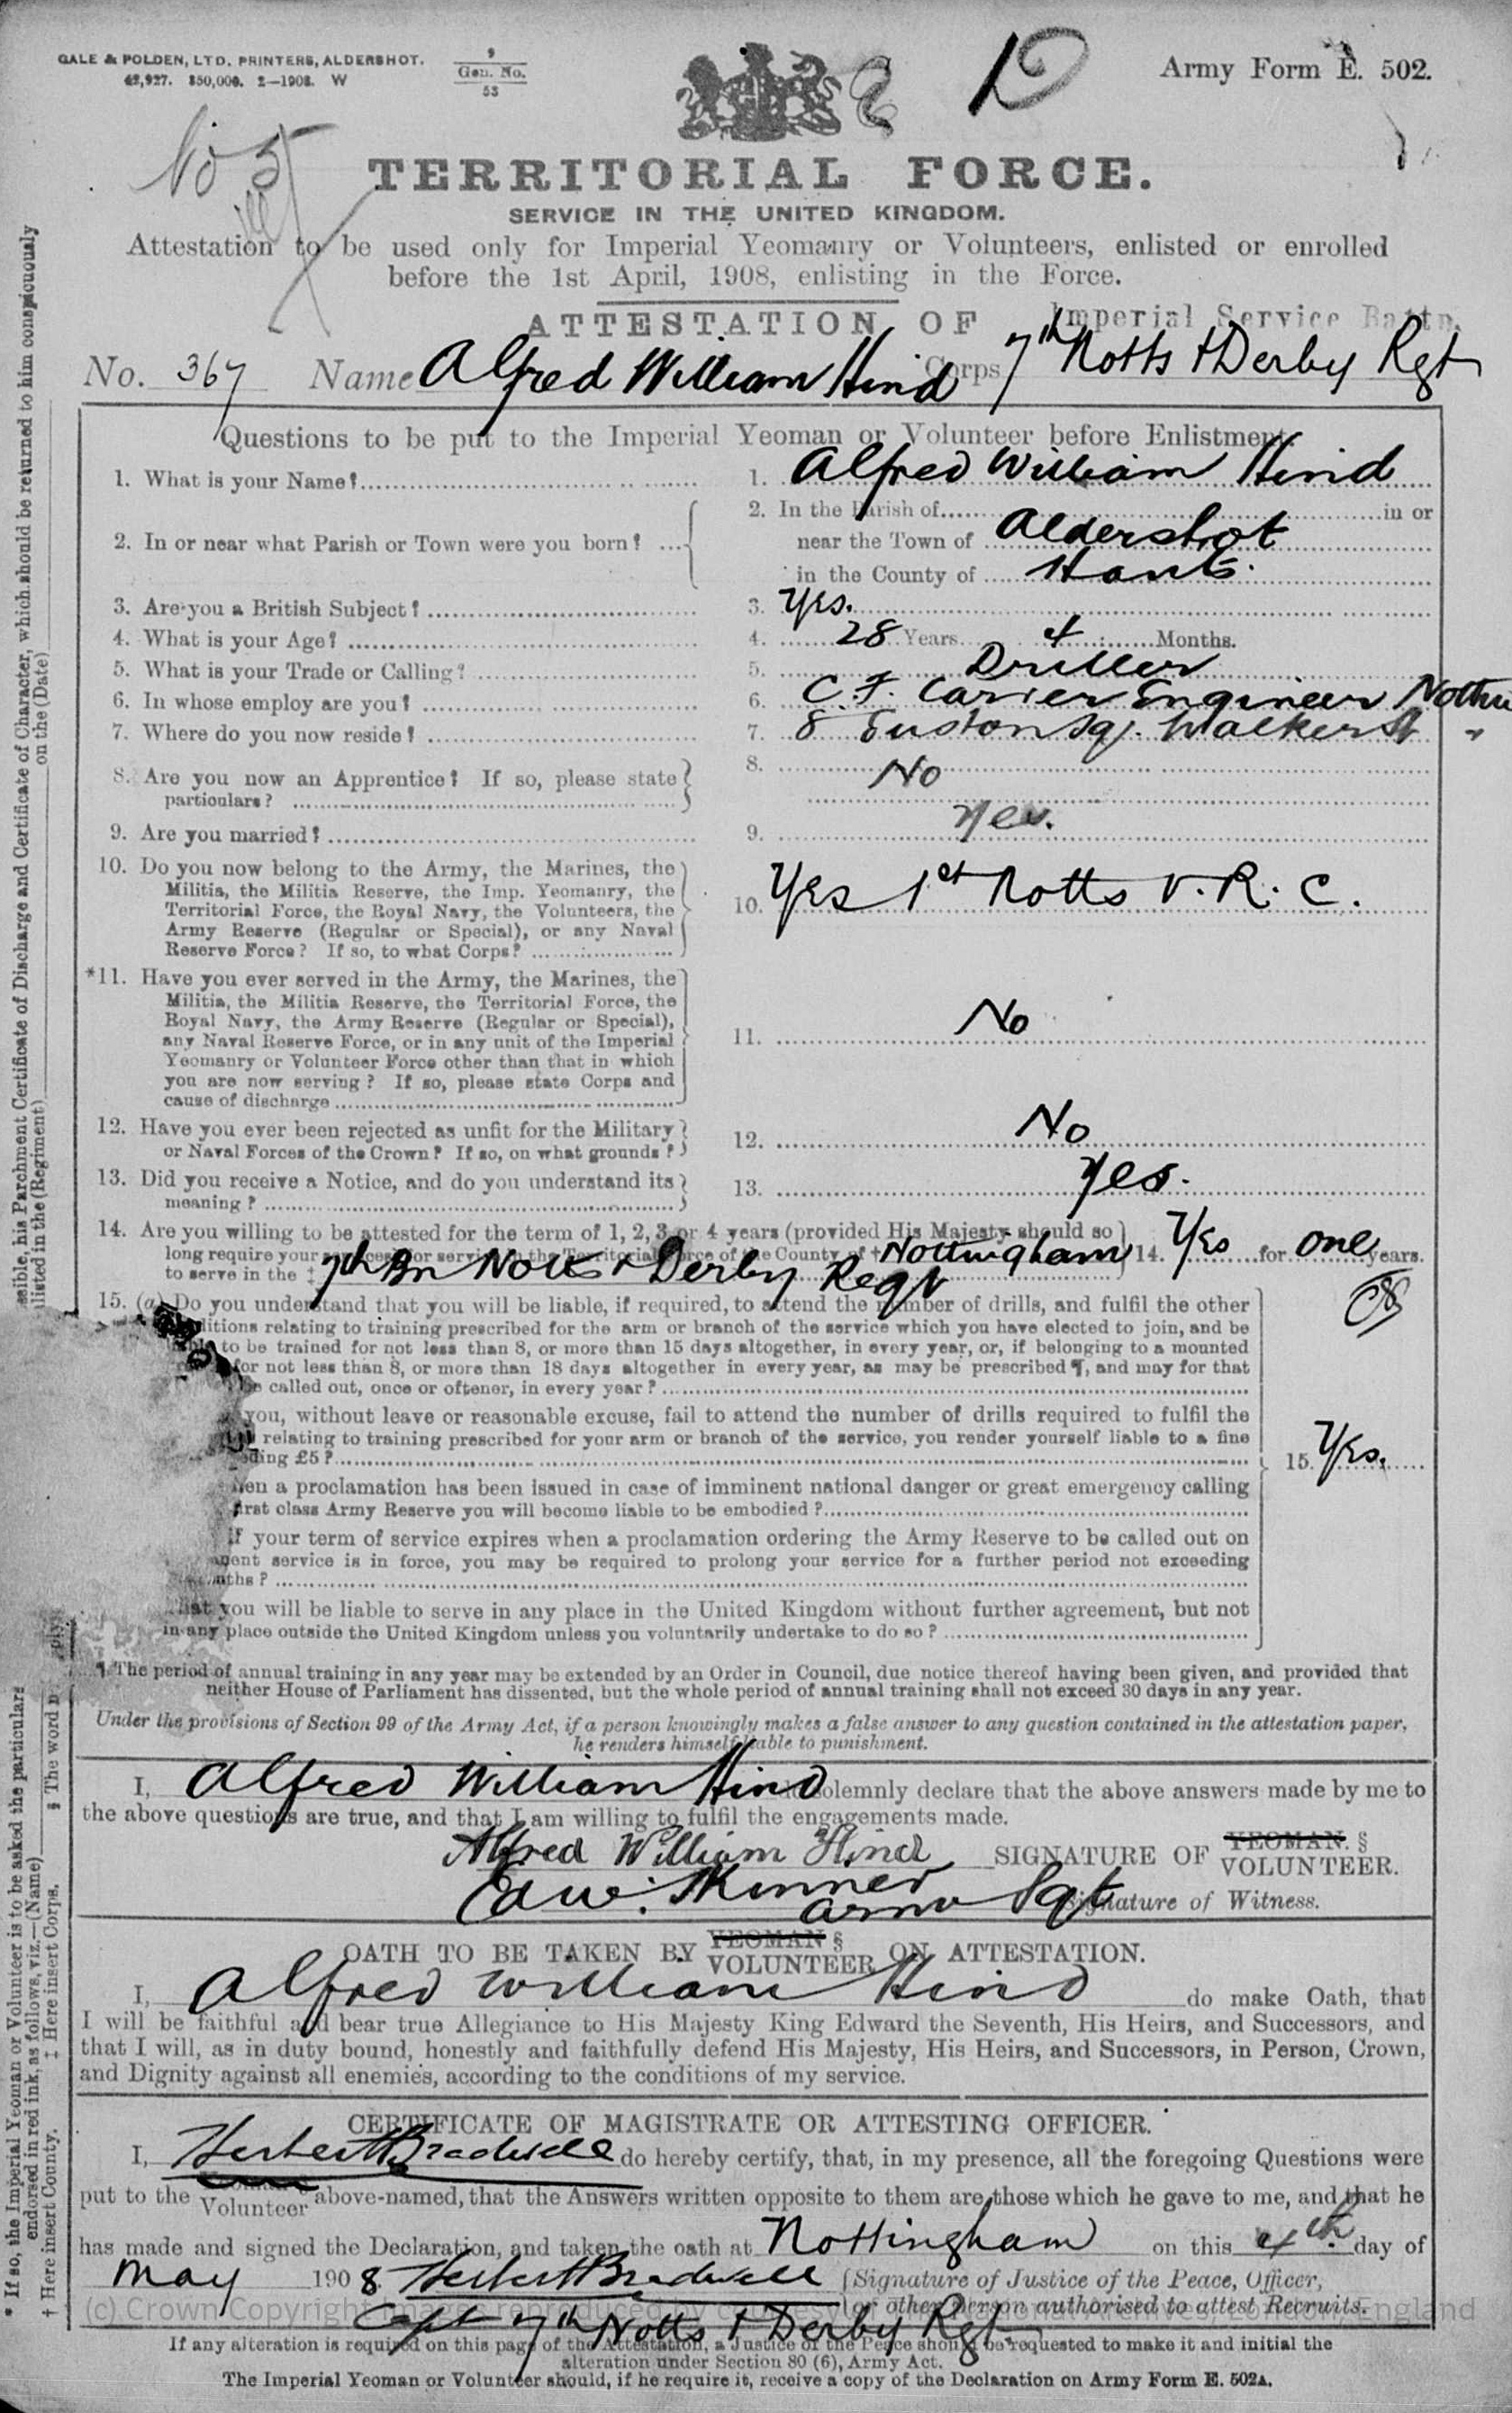 GALE & POLDEN, LTD. PRINTERS, ALDERSHOT.
42,927. 350,000. 2—1908. W
9
Gen. No.
53
D
Army Form E. 502.
No 5
TERRITORIAL FORCE.
SERVICE IN THE UNITED KINGDOM.
Attestation to be used only for Imperial Yeomanry or Volunteers, enlisted or enrolled
before the 1st April, 1908, enlisting in the Force.
Imperial Service Battn.
ATTESTATION OF
No. 367 Name Alfred William Hind Corps 7th Notts & Derby Rgt
Questions to be put to the Imperial Yeoman or Volunteer before Enlistment.
1. What is your Name? 1. Alfred William Hind
2. In or near what Parish or Town were you born? 2. In the Parish of in or
near the Town of Aldershot
in the County of Hants.
3. Are you a British Subject? 3. Yes.
4. What is your Age? 4. 28 Years 4 Months.
5. What is your Trade or Calling? 5. Driller
6. In whose employ are you? 6. C. F. Carrier Engineer
7. Where do you now reside? 7. 8 Euston Sq. Walker St "
8. Are you now an Apprentice? If so, please state 8. No
particulars?
9. Are you married? 9. Yes.
10. Do you now belong to the Army, the Marines, the
Militia, the Militia Reserve, the Imp. Yeomanry, the
Territorial Force, the Royal Navy, the Volunteers, the 10. Yes 1st Notts V. R. C.
Army Reserve (Regular or Special), or any Naval
Reserve Force? If so, to what Corps?
*11. Have you ever served in the Army, the Marines, the
Militia, the Militia Reserve, the Territorial Force, the
Royal Navy, the Army Reserve (Regular or Special),
any Naval Reserve Force, or in any unit of the Imperial 11. No
Yeomanry or Volunteer Force other than that in which
you are now serving? If so, please state Corps and
cause of discharge
12. Have you ever been rejected as unfit for the Military 12. No
or Naval Forces of the Crown? If so, on what grounds?
13. Did you receive a Notice, and do you understand its 13. Yes.
meaning?
14. Are you willing to be attested for the term of 1, 2, 3 or 4 years (provided His Majesty should so
long require your services) for service in the Territorial Force of the County of † Nottingham 14. Yes for one years.
to serve in the ‡ 7th Bn Notts & Derby Regt
15. (a) Do you understand that you will be liable, if required, to attend the number of drills, and fulfil the other
ditions relating to training prescribed for the arm or branch of the service which you have elected to join, and be
to be trained for not less than 8, or more than 15 days altogether, in every year, or, if belonging to a mounted
for not less than 8, or more than 18 days altogether in every year, as may be prescribed ¶, and may for that
be called out, once or oftener, in every year?
you, without leave or reasonable excuse, fail to attend the number of drills required to fulfil the
relating to training prescribed for your arm or branch of the service, you render yourself liable to a fine
ding £5? 15. Yes.
en a proclamation has been issued in case of imminent national danger or great emergency calling
first class Army Reserve you will become liable to be embodied?
if your term of service expires when a proclamation ordering the Army Reserve to be called out on
anent service is in force, you may be required to prolong your service for a further period not exceeding
nths?
that you will be liable to serve in any place in the United Kingdom without further agreement, but not
in any place outside the United Kingdom unless you voluntarily undertake to do so?
¶ The period of annual training in any year may be extended by an Order in Council, due notice thereof having been given, and provided that
neither House of Parliament has dissented, but the whole period of annual training shall not exceed 30 days in any year.
Under the provisions of Section 99 of the Army Act, if a person knowingly makes a false answer to any question contained in the attestation paper,
he renders himself liable to punishment.
I, Alfred William Hind do solemnly declare that the above answers made by me to
the above questions are true, and that I am willing to fulfil the engagements made.
Alfred William Hind SIGNATURE OF YEOMAN. § VOLUNTEER.
Edw. Skinner Armr Sgt Signature of Witness.
OATH TO BE TAKEN BY YEOMAN § VOLUNTEER ON ATTESTATION.
I, Alfred William Hind do make Oath, that
I will be faithful and bear true Allegiance to His Majesty King Edward the Seventh, His Heirs, and Successors, and
that I will, as in duty bound, honestly and faithfully defend His Majesty, His Heirs, and Successors, in Person, Crown,
and Dignity against all enemies, according to the conditions of my service.
CERTIFICATE OF MAGISTRATE OR ATTESTING OFFICER.
I, Herbert Bradwell do hereby certify, that, in my presence, all the foregoing Questions were
put to the Volunteer above-named, that the Answers written opposite to them are those which he gave to me, and that he
has made and signed the Declaration, and taken the oath at Nottingham on this 4th day of
May 1908. Herbert Bradwell (Signature of Justice of the Peace, Officer,
or other Person authorised to attest Recruits.
Capt 7th Notts & Derby Rgt
If any alteration is required on this page of the Attestation, a Justice of the Peace should be requested to make it and initial the
alteration under Section 80 (6), Army Act.
The Imperial Yeoman or Volunteer should, if he require it, receive a copy of the Declaration on Army Form E. 502A.
ssible, his Parchment Certificate of Discharge and Certificate of Character, which should be returned to him conspicuously
listed in the (Regiment) on the (Date)
* If so, the Imperial Yeoman or Volunteer is to be asked the particulars
endorsed in red ink, as follows, viz.—(Name)
† Here insert County. ‡ Here insert Corps. § The word